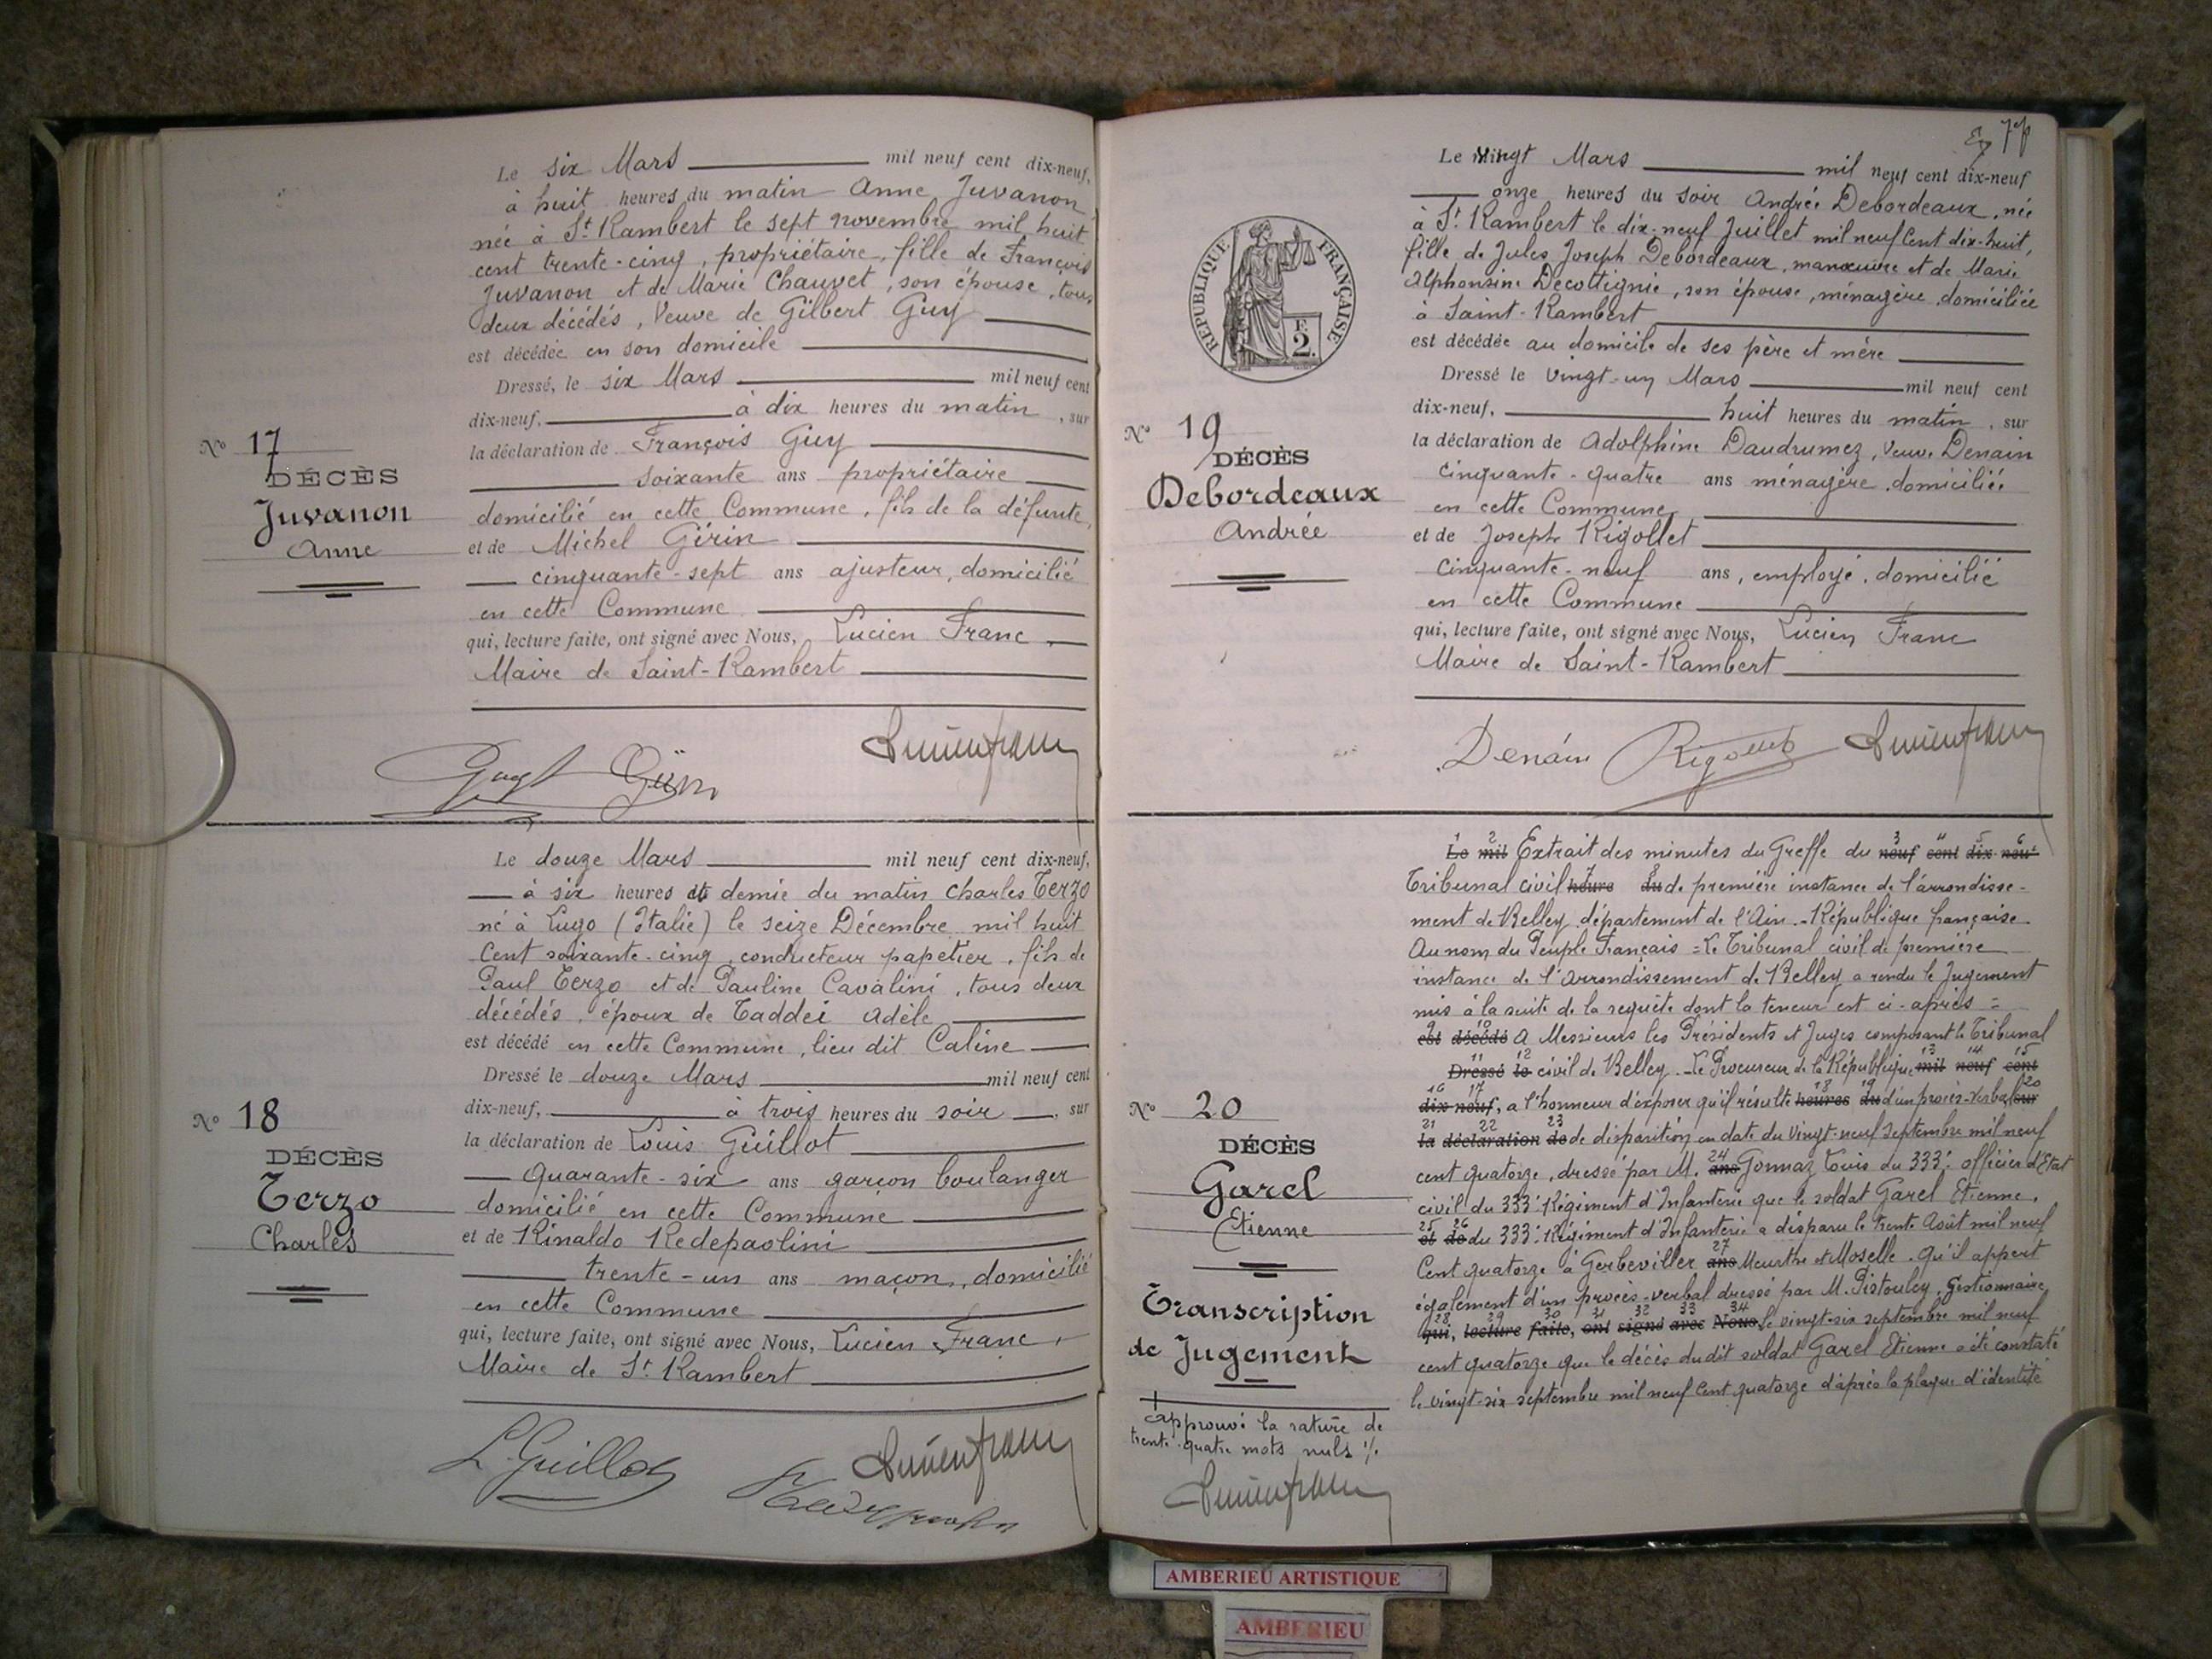 Le six Mars mil neuf cent dix-neuf,
à huit heures du matin Anne Juvanon
née à St Rambert le sept novembre mil huit
cent trente-cinq, propriétaire, fille de François
Juvanon et de Marie Chauvet, son épouse, tous
deux décédés, Veuve de Gilbert Guy
est décédée en son domicile
Dressé, le six Mars mil neuf cent
dix-neuf, à dix heures du matin, sur
la déclaration de François Guy
soixante ans propriétaire
domicilié en cette Commune, fils de la défunte,
et de Michel Gérin
cinquante-sept ans ajusteur, domicilié
en cette Commune
qui, lecture faite, ont signé avec Nous, Lucien Franc,
Maire de Saint-Rambert
No 17
DÉCÈS
Juvanon
Anne
Le douze Mars mil neuf cent dix-neuf,
à six heures et demie du matin Charles Terzo
né à Lugo (Italie) le seize Décembre mil huit
Cent soixante-cinq, conducteur papetier, fils de
Paul Terzo et de Pauline Cavalini, tous deux
décédés, époux de Taddei Adèle
est décédé en cette Commune, lieu dit Caline
Dressé le douze Mars mil neuf cent
dix-neuf, à trois heures du soir, sur
la déclaration de Louis Guillot
Quarante-six ans garçon boulanger
domicilié en cette Commune
et de Rinaldo Redepaolini
trente-un ans maçon, domicilié
en cette Commune
qui, lecture faite, ont signé avec Nous, Lucien Franc,
Maire de St Rambert
L. Guillot
No 18
DÉCÈS
Terzo
Charles
Le Vingt Mars mil neuf cent dix-neuf
onze heures du soir Andrée Debordeaux, née
à St Rambert le dix-neuf Juillet mil neuf Cent dix-huit,
fille de Jules Joseph Debordeaux, manœuvre et de Marie
Alphonsine Decottignie, son épouse, ménagère, domiciliée
à Saint-Rambert
est décédée au domicile de ses père et mère
Dressé le Vingt-un Mars mil neuf cent
dix-neuf, huit heures du matin, sur
la déclaration de Adolphine Daudrumez, Veuve Denain
Cinquante-quatre ans ménagère, domiciliée
en cette Commune
et de Joseph Rigollet
Cinquante-neuf ans, employé, domicilié
en cette Commune
qui, lecture faite, ont signé avec Nous, Lucien Franc
Maire de Saint-Rambert
Denain
REPUBLIQUE FRANÇAISE
F
2.
No 19
DÉCÈS
Debordeaux
Andrée
1 2 3 4 5 6
Le mil Extrait des minutes du Greffe du neuf cent dix-neuf
Tribunal civil heure du de première instance de l'arrondisse-
ment de Belley, département de l'Ain - République française
Au nom du Peuple Français = Le Tribunal civil de première
instance de l'Arrondissement de Belley a rendu le Jugement
mis à la suite de la requête dont la teneur est ci-après =
9 10
est décédé A Messieurs les Présidents et Juges composant le Tribunal
11 12 13 14 15
Dressé le civil de Belley - Le Procureur de la République mil neuf cent
16 17 18 19 20
dix-neuf, a l'honneur d'exposer qu'il résulte heures du d'un procès-verbal sur
21 22 23
la déclaration de de disparition en date du vingt-neuf septembre mil neuf
cent quatorze, dressé par M. ans Gonnaz Louis du 333e officier d'Etat
24
civil du 333e Régiment d'Infanterie que le soldat Garel Etienne,
25 26
et de du 333e Régiment d'Infanterie a disparu le trente Août mil neuf
27
Cent quatorze à Gerbeviller ans Meurthe et Moselle. Qu'il appert
également d'un procès-verbal dressé par M. Pistouley, Gestionnaire
28 29 30 31 32 33 34
qui, lecture faite, ont signé avec Nous, le vingt-six septembre mil neuf
cent quatorze que le décès dudit soldat Garel Etienne a été constaté
le vingt-six septembre mil neuf Cent quatorze d'après la plaque d'identité
No 20
DÉCÈS
Garel
Etienne
Transcription
de Jugement
Approuvé la rature de
trente-quatre mots nuls
AMBERIEU ARTISTIQUE
AMBERIEU